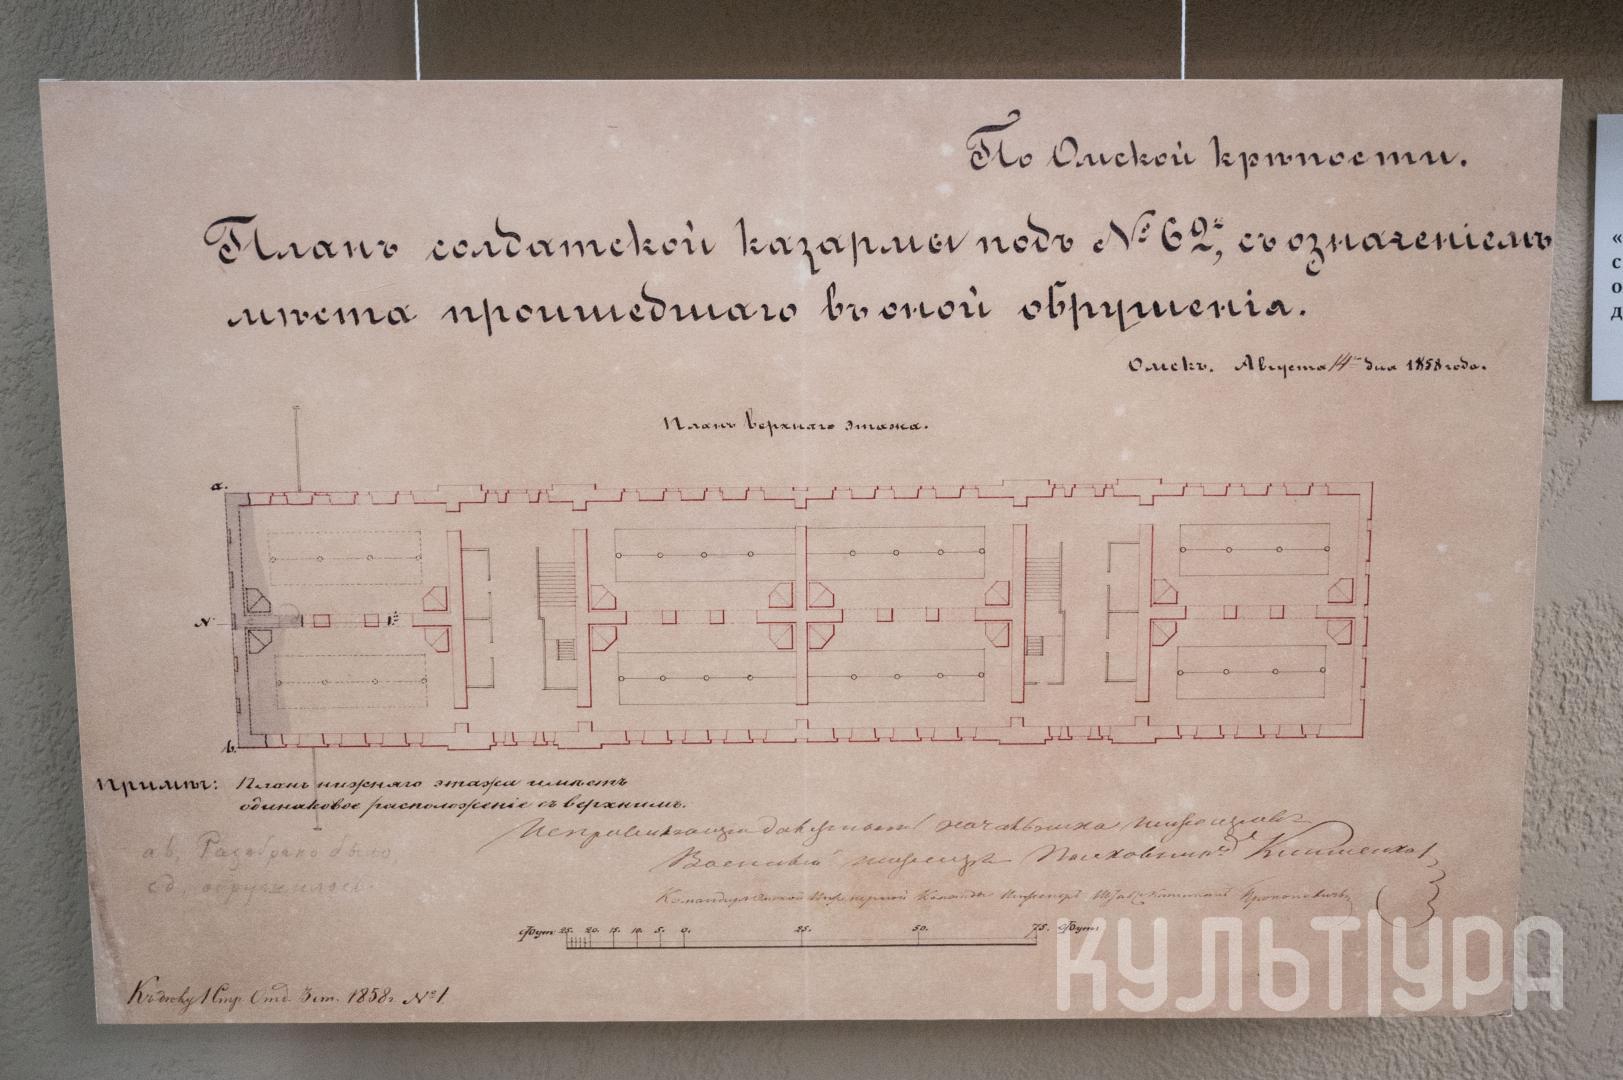 По Омской крѣпости.
Планъ солдатской казармы подъ № 62м, съ означеніемъ
мѣста происшедшаго въ оной обрушенія.
Омскъ. Августа 14 дня 1858 года.
Планъ верхняго этажа.
а.
N
1
b.
Примѣч: Планъ нижняго этажа имѣетъ
одинаковое расположеніе съ верхнимъ.
ab, Разобрано было,
cd, обрушилось.
Исправляющій должность начальника инженеровъ
Военный инженеръ Полковникъ
Командиръ Омской Инженерной Команды Инженеръ Штабсъ Капитанъ
Футъ 25. 20. 15. 10. 5. 0. 25. 50. 75. Футъ
Къ дѣлу 1 Стр. Отд. 3 ст. 1858 г. № 1
КУЛЬТУРА
«
с
о
д